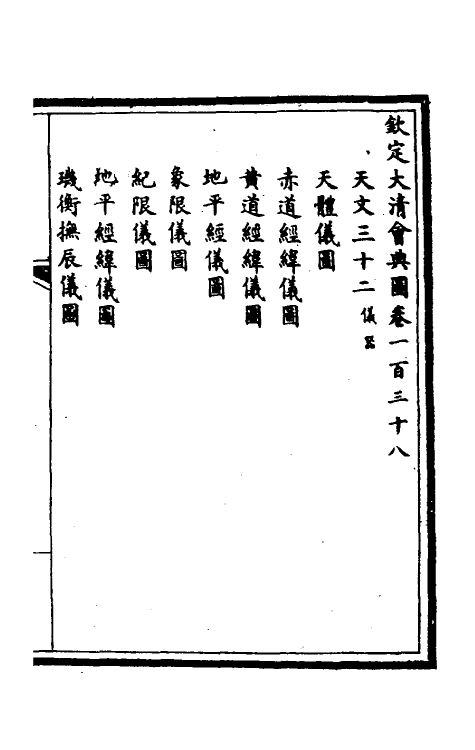 欽定大清會典圖卷一百三十八
天文三十二 儀器
天體儀圖
赤道經緯儀圖
黃道經緯儀圖
地平經儀圖
象限儀圖
紀限儀圖
地平經緯儀圖
璣衡撫辰儀圖